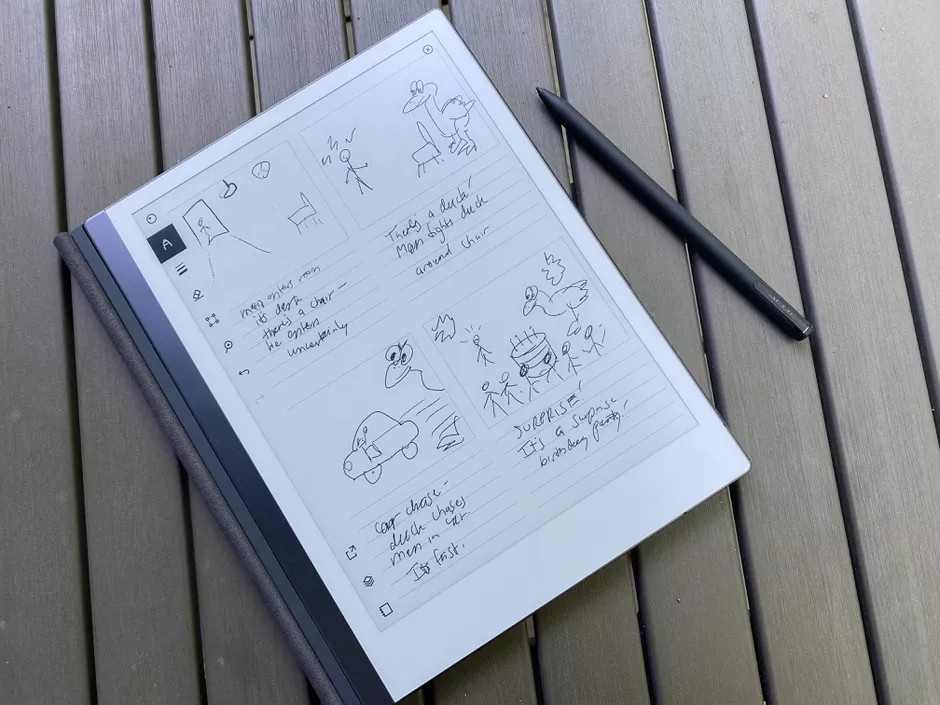 A
man enters room
it's dark
there's a chair –
he enters
uncertainly
There's a duck!
Man fights duck
around chair
car chase –
duck chases
man in
It's fast.
SURPRISE!
It's a surprise
birthday party!